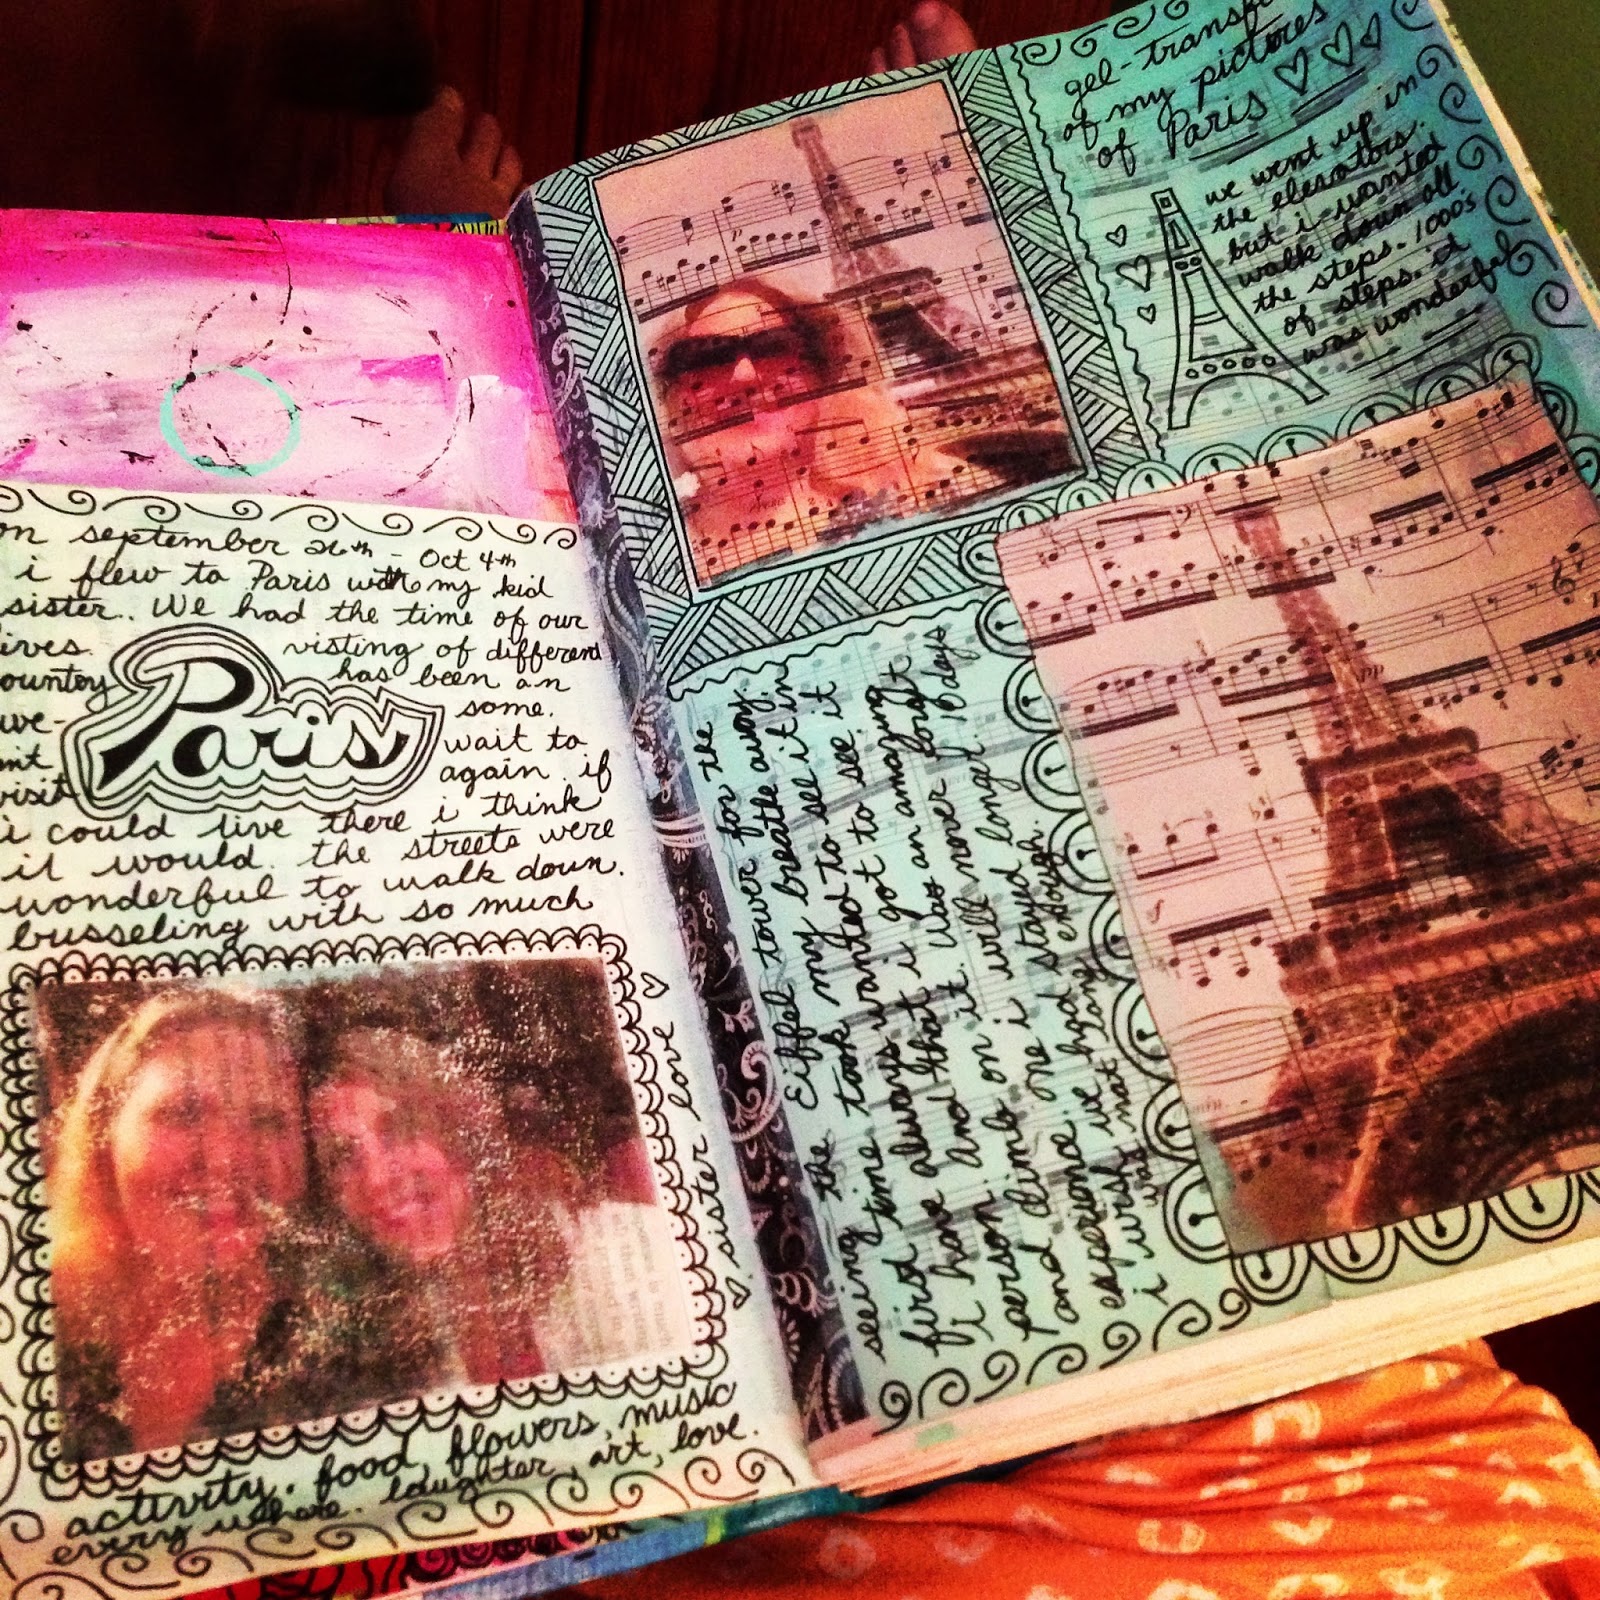 on september 26th - Oct 4th
i flew to Paris with my kid
sister.. We had the time of our
ives. visting of different
ountoy has been an
we- some.
nt wait to
visit again. if
Paris
i could live there i think
it would. the streets were
wonderful to walk down.
busseling with so much
♡ sister love ♡
activity. food, flowers, music
every where. laughter, art, love.
gel-transf
of my pictures
of Paris ♡♡♡
we went up in
the elevators.
but i wanted
walk down all
the steps. 1000's
of steps. it
was wonderful
seeing the Eiffel tower for the
first time took my breathe away.
i have always wanted to see it in
person. And that i got to see it
and climb on it. was an amazing
experience one i will never forget.
i wish we had stayed longer. 10 days
was not long enough.